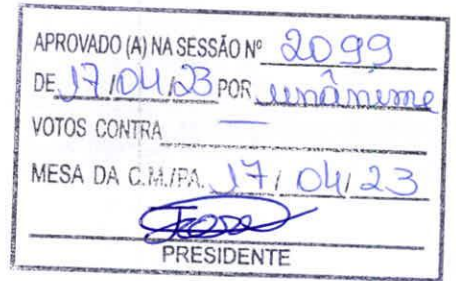 APROVADO (A) NA SESSÃO Nº 2099
DE 17/04/23 POR unânime
VOTOS CONTRA —
MESA DA C.M./PA. 17/04/23
PRESIDENTE